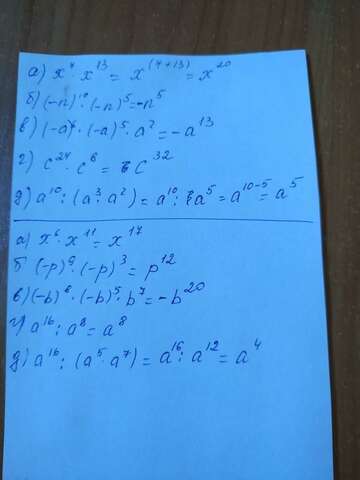 а) x⁷ · x¹³ = x⁽⁷⁺¹³⁾ = x²⁰
б) (-n)¹⁰ · (-n)⁵ = -n⁵
в) (-a)⁶ · (-a)⁵ · a² = -a¹³
г) c²⁴ · c⁸ = c³²
д) a¹⁰ : (a³ · a²) = a¹⁰ : a⁵ = a¹⁰⁻⁵ = a⁵
а) x⁶ · x¹¹ = x¹⁷
б) (-p)⁹ · (-p)³ = p¹²
в) (-b)⁸ · (-b)⁵ · b⁷ = -b²⁰
г) a¹⁶ : a⁸ = a⁸
д) a¹⁶ : (a⁵ · a⁷) = a¹⁶ : a¹² = a⁴